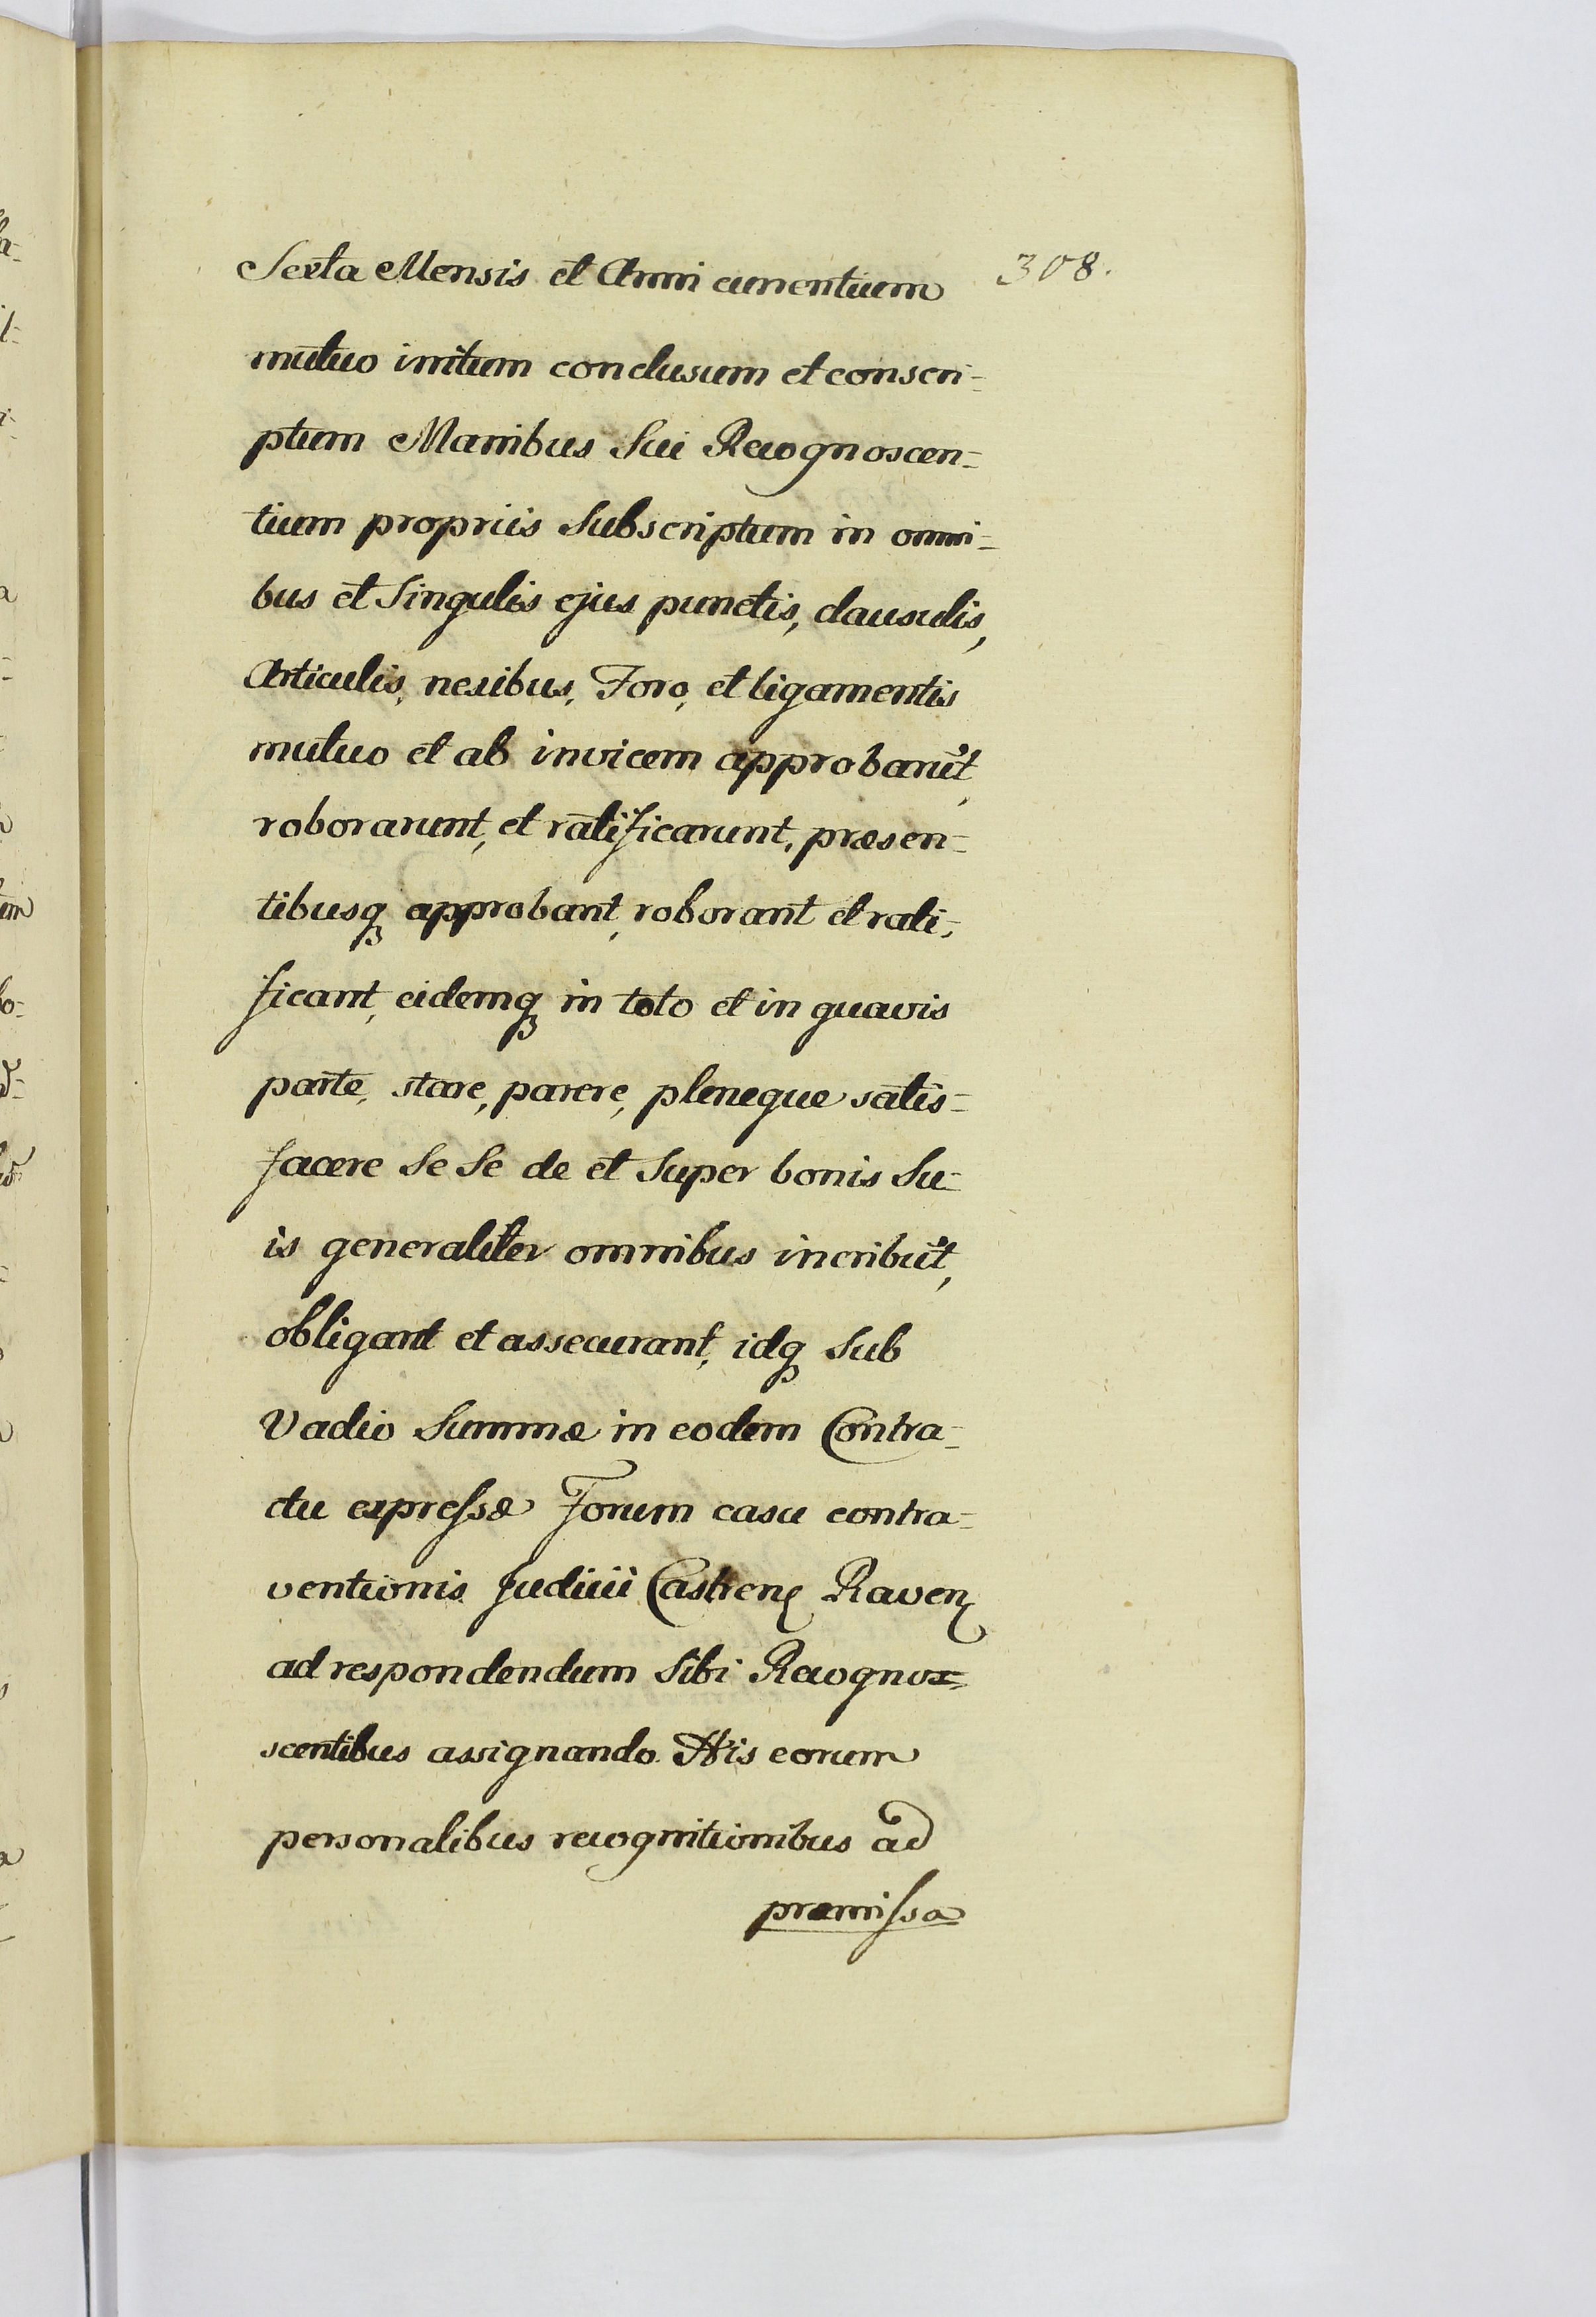 Sexta Mensis et Anni currentium 308.
mutuo initum conclusum et conscri=
ptum Manibus Sui Recognoscen=
tium propriis Subscriptum in omni=
bus et Singulis ejus punctis, clausulis,
Articulis, nexibus, Foro, et ligamentis
mutuo et ab invicem approbarut,
roborarunt, et ratificarunt, præsen=
tibusq approbant, roborant et rati=
ficant, eidemq in toto et in quavis
parte, stare, parere, pleneque satis=
facere Se Se de et Super bonis Su=
is generaliter omnibus incribut,
obligant et assecurant, idq Sub
Vadio Summæ in eodem Contra=
ctu expressæ Forum casu contra=
ventionis Judicii Castren Raven
ad respondendum Sibi Recognos=
scentibus assignando. His eorum
personalibus recognitionibus ad
præmissa